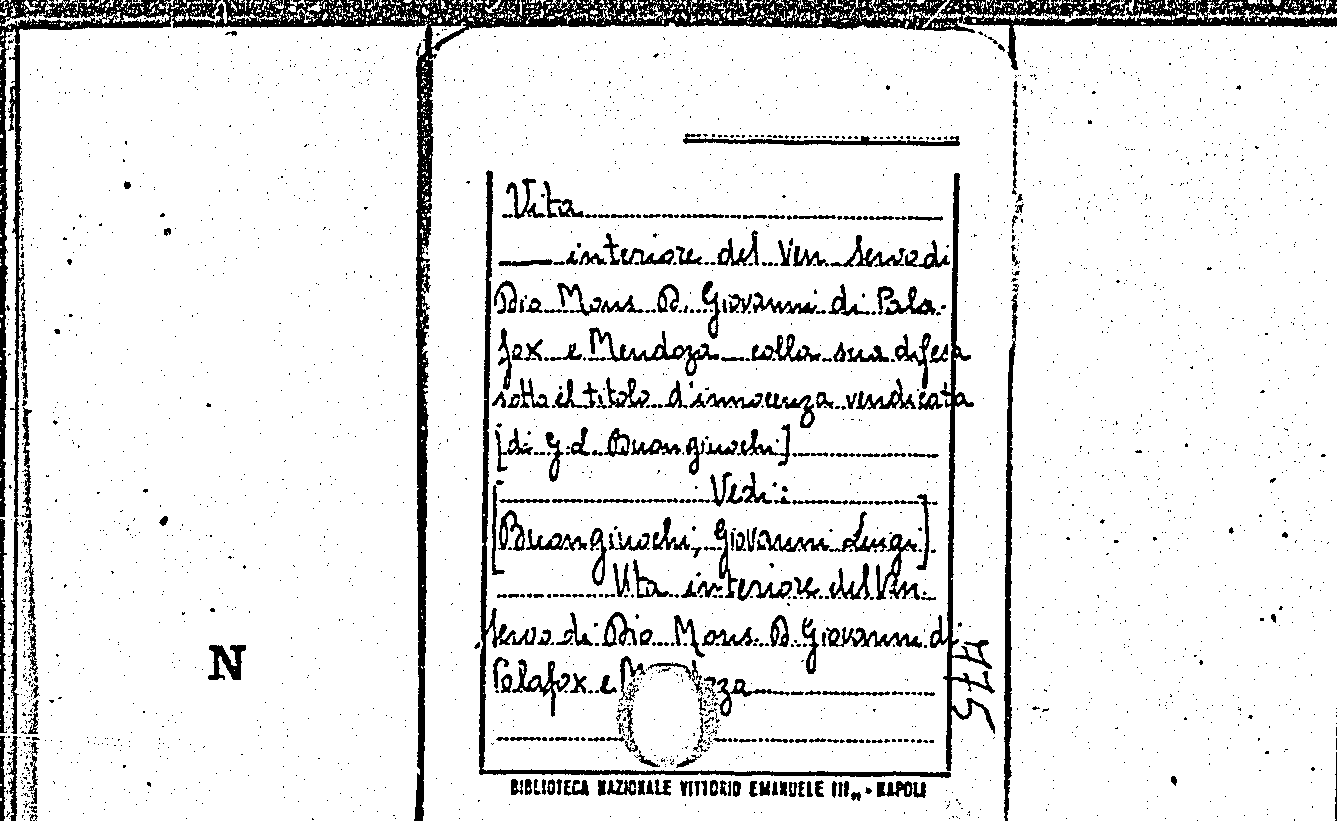 Vita
interiore del Ven servo di
Dio Mons. D. Giovanni di Pala-
fox e Mendoza colla sua difesa
sotto il titolo d'innocenza vendicata
[di G. L. Buongiuochi]
Vedi:
[Buongiuochi, Giovanni Luigi]
Vita interiore del Ven.
servo di Dio Mons. D. Giovanni di
Palafox e M za
475
N
BIBLIOTECA NAZIONALE VITTORIO EMANUELE III„ - NAPOLI